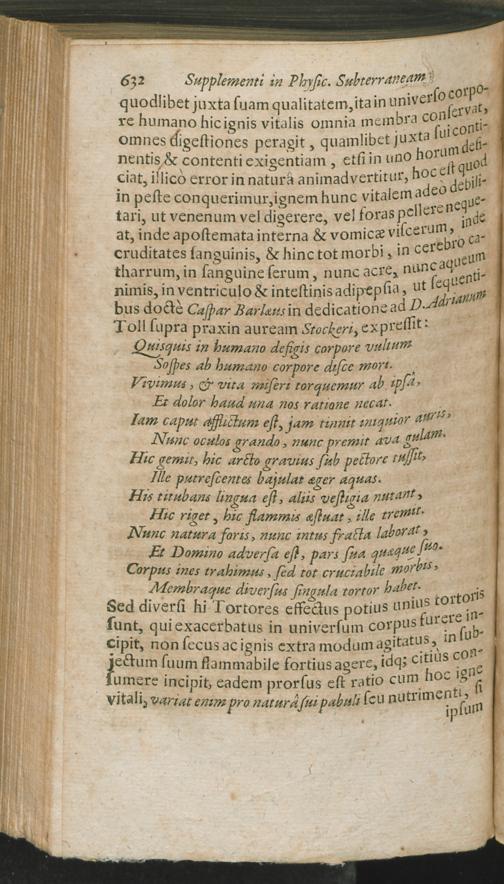 632 Supplementi in Phyſic. Subterraneam
quodlibet juxta ſuam qualitatem, ita in univerſo corpo-
re humano hic ignis vitalis omnia membra conſervat,
omnes digeſtiones peragit, quamlibet juxta ſui conti-
nentis & contenti exigentiam, etſi in uno horum defi-
ciat, illicò error in naturâ animadvertitur, hoc eſt quod
in peſte conquerimur, ignem hunc vitalem adeo debili-
tari, ut venenum vel digerere, vel foras pellere neque-
at, inde apoſtemata interna & vomicæ viſcerum, inde
cruditates ſanguinis, & hinc tot morbi, in cerebro ca-
tharrum, in ſanguine ſerum, nunc acre, nunc aqueum
nimis, in ventriculo & inteſtinis adipepſia, ut ſequenti-
bus doctè Caſpar Barlæus in dedicatione ad D. Adrianum
Toll ſupra praxin auream Stockeri, expreſſit:
Quisquis in humano defigis corpore vultum
Soſpes ab humano corpore diſce mori.
Vivimus, & vita miſeri torquemur ab ipſâ,
Et dolor haud una nos ratione necat.
Iam caput afflictum eſt, jam tinnit iniquior auris,
Nunc oculos grando, nunc premit ava gulam.
Hic gemit, hic arcto gravius ſub pectore tuſſit,
Ille putreſcentes bajulat æger aquas.
His titubans lingua eſt, aliis veſtigia nutant,
Hic riget, hic flammis æſtuat, ille tremit.
Nunc natura foris, nunc intus fracta laborat,
Et Domino adverſa eſt, pars ſua quæque ſuo.
Corpus ines trahimus, ſed tot cruciabile morbis,
Membraque diverſus ſingula tortor habet.
Sed diverſi hi Tortores effectus potius unius tortoris
ſunt, qui exacerbatus in univerſum corpus furere in-
cipit, non ſecus ac ignis extra modum agitatus, in ſub-
jectum ſuum flammabile fortius agere, idq; citiùs con-
ſumere incipit, eadem prorſus eſt ratio cum hoc igne
vitali, variat enim pro naturâ ſui pabuli ſeu nutrimenti, ſi
ipſum